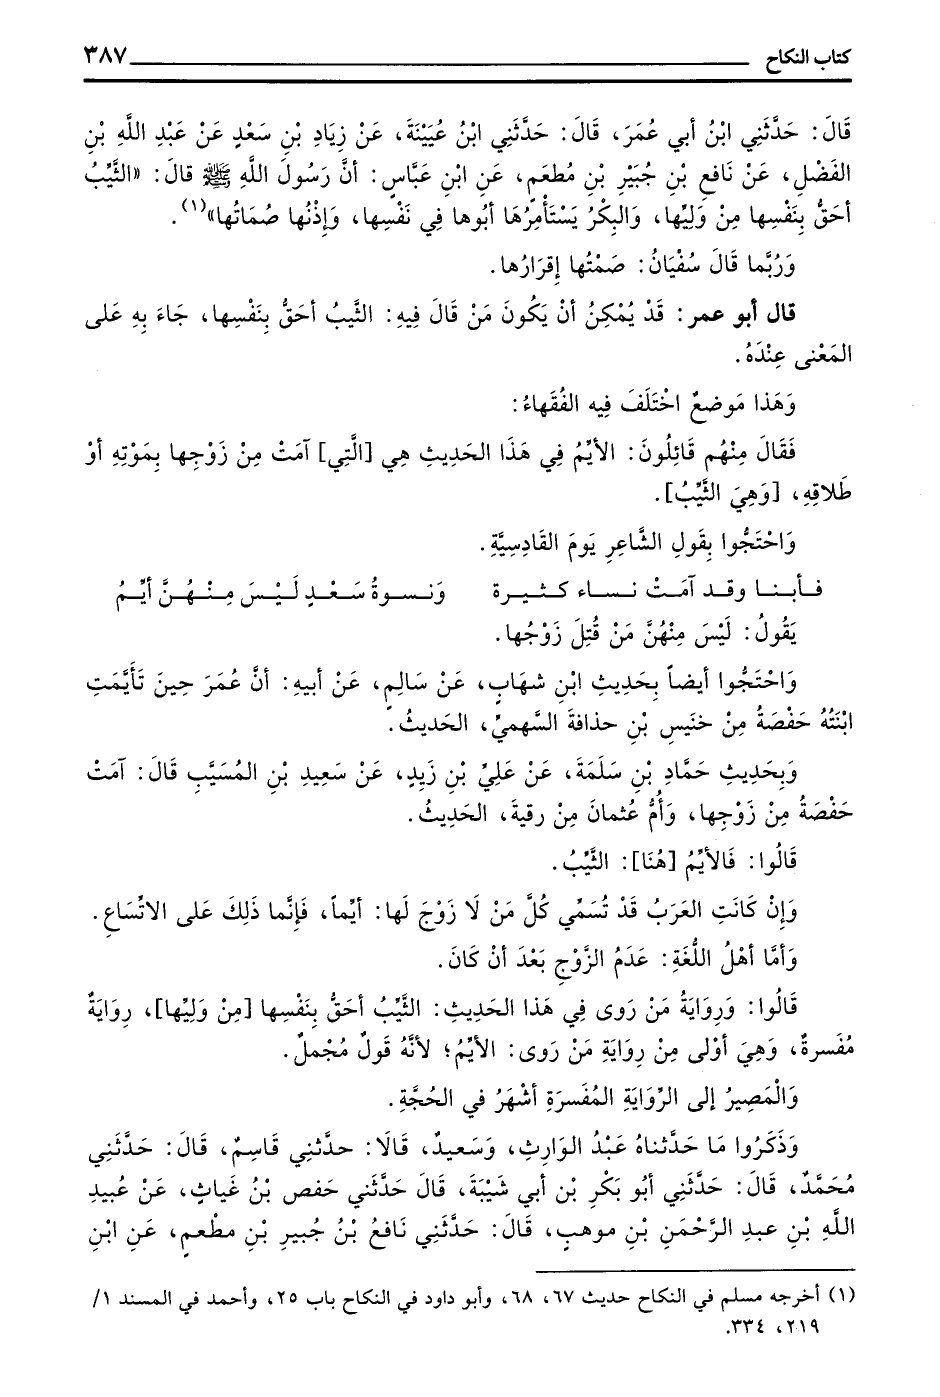 كتاب النكاح ٣٨٧
قَالَ: حَدَّثَنِي ابْنُ أبي عُمَرَ، قَالَ: حَدَّثَنِي ابْنُ عُيَيْنَةَ، عَنْ زِيَادِ بْنِ سَعْدٍ عَنْ عَبْدِ اللَّهِ بْنِ
الفَضْلِ، عَنْ نَافعِ بْنِ جُبَيْرِ بْنِ مُطعَمٍ، عَنِ ابْنِ عَبَّاسٍ: أنَّ رَسُولَ اللَّهِ ﷺ قالَ: «الثَّيِّبُ
أحَقُّ بِنَفْسِها مِنْ وَلِيِّها، وَالبِكْرُ يَسْتَأْمِرُهَا أبُوها فِي نَفْسِها، وَإِذْنُها صُمَاتُها»(١).
وَرُبَّما قَالَ سُفْيَانُ: صَمْتُها إِقرَارُها.
قال أبو عمر: قَدْ يُمْكِنُ أنْ يَكُونَ مَنْ قَالَ فِيهِ: الثَّيِّبُ أحَقُّ بِنَفْسِها، جَاءَ بِهِ عَلى
المَعْنى عِنْدَهُ.
وَهَذا مَوضعٌ اخْتَلَفَ فِيه الفُقَهاءُ:
فَقَالَ مِنْهُم قَائِلُونَ: الأيِّمُ فِي هَذَا الحَدِيثِ هِي [الَّتِي] آمَتْ مِن زَوْجِها بِمَوْتِهِ أوْ
طَلاقِهِ، [وَهِيَ الثَّيِّبُ].
وَاحْتَجُّوا بِقَولِ الشَّاعرِ يَومَ القَادِسِيَّةِ.
فـأبـنـا وقـد آمَـتْ نـسـاء كـثـيـرة وَنـسـوةُ سَـعْـدٍ لَـيْـسَ مِـنْـهُـنَّ أيِّـمُ
يَقُولُ: لَيْسَ مِنْهُنَّ مَنْ قُتِلَ زَوْجُها.
وَاحْتَجُّوا أيضاً بِحَدِيثِ ابْنِ شهَابٍ، عَنْ سَالِمٍ، عَنْ أبيهِ: أنَّ عُمَرَ حِينَ تَأَيَّمَتِ
ابْنَتُهُ حَفْصَةُ مِنْ خنَيس بْنِ حذافةَ السَّهميِّ، الحَديثُ.
وَبِحَدِيثِ حَمَّادِ بْنِ سَلَمَةَ، عَنْ عَلِيِّ بْنِ زَيدٍ، عَنْ سَعِيدِ بْنِ المُسَيَّبِ قَالَ: آمَتْ
حَفْصَةُ مِنْ زَوْجِها، وَأُمُّ عُثمانَ مِنْ رقيةَ، الحَدِيثُ.
قَالُوا: فَالأيِّمُ [هُنَا]: الثَّيِّبُ.
وَإِنْ كَانَتِ العَرَبُ قَدْ تُسَمِّي كُلَّ مَنْ لَا زَوْجَ لَها: أيِّماً، فَإِنَّما ذَلِكَ عَلى الاتِّسَاعِ.
وَأمَّا أهْلُ اللُّغَةِ: عَدَمُ الزَّوْجِ بَعْدَ أنْ كَانَ.
قَالُوا: وَرِوَايَةُ مَنْ رَوى فِي هَذا الحَدِيثِ: الثَّيِّبُ أحَقُّ بِنَفْسِها [مِنْ وَلِيِّها]، رِوَايَةٌ
مُفَسرةٌ، وَهِيَ أوْلى مِنْ رِوايَةِ مَنْ رَوى: الأيِّمُ؛ لأنَّهُ قَولٌ مُجْملٌ.
وَالْمَصِيرُ إلى الرِّوَايَةِ المُفَسرَةِ أشْهَرُ في الحُجَّةِ.
وَذَكَرُوا مَا حَدَّثناهُ عَبْدُ الوَارِثِ، وَسَعيدٌ، قَالَا: حدَّثني قَاسِمٌ، قَالَ: حَدَّثَنِي
مُحَمَّدٌ، قَالَ: حَدَّثَنِي أبُو بَكْرِ بْن أبي شَيْبَةَ، قَالَ حَدَّثَني حَفصُ بْنُ غَياثٍ، عَنْ عُبيدِ
اللَّهِ بْنِ عبدِ الرَّحْمَنِ بْنِ موهبٍ، قَالَ: حَدَّثَنِي نَافعُ بْنُ جُبيرِ بْنِ مطْعمٍ، عَنِ ابْنِ
(١) أخرجه مسلم في النكاح حديث ٦٧، ٦٨، وأبو داود في النكاح باب ٢٥، وأحمد في المسند ١/
٢١٩، ٣٣٤.